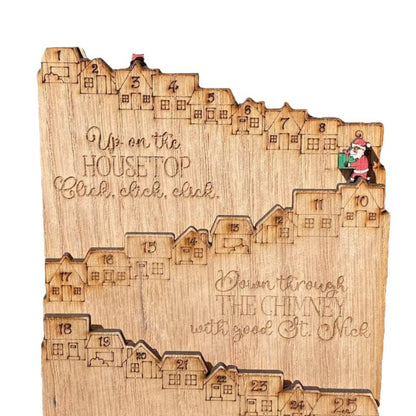 1 2 3 4 5 6 7 8
Up on the
HOUSETOP
Click, click, click.
10
11
12
13
14
15
16
17
Down through
THE CHIMNEY
with good St. Nick
18 19 20 21 22 23 24 25